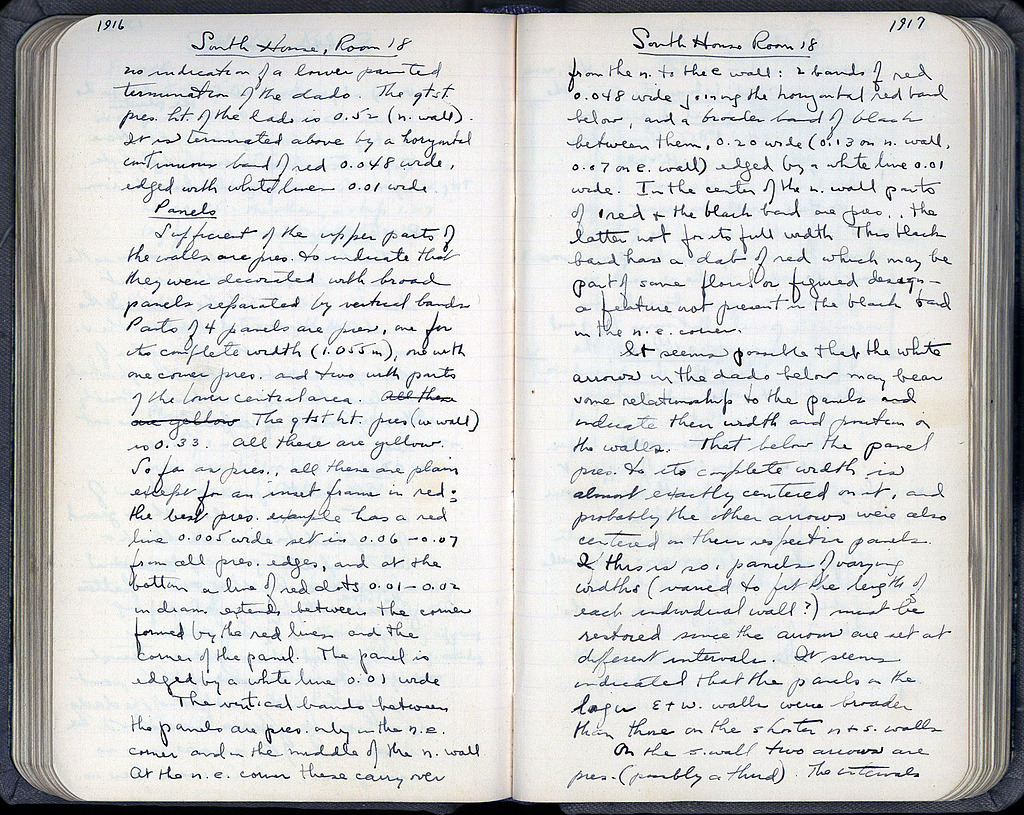 1916
South House, Room 18
no indication of a lower painted
termination of the dado. The gtst.
pres. ht. of the dado is 0.52 (n. wall).
It is terminated above by a horizontal
continuous band of red 0.048 wide,
edged with white lines 0.01 wide.
Panels
Sufficient of the upper parts of
the walls are pres. to indicate that
they were decorated with broad
panels separated by vertical bands.
Parts of 4 panels are pres., one for
its complete width (1.055 m), one with
one corner pres. and two with parts
of the lower central area. All these
are yellow The gtst ht. pres (w wall)
is 0.33. All these are yellow.
So far as pres., all these are plain
except for an inset frame in red:
the best pres. example has a red
line 0.005 wide set in 0.06 - 0.07
from all pres. edges, and at the
bottom a line of red dots 0.01 - 0.02
in diam. extends between the corner
formed by the red lines and the
corner of the panel. The panel is
edged by a white line 0.01 wide
The vertical bands between
the panels are pres. only in the n.e.
corner and in the middle of the n. wall
At the n.e. corner these carry over
1917
South House Room 18
from the n. to the e wall: 2 bands of red
0.048 wide joining the horizontal red band
below, and a broader band of black
between them, 0.20 wide (0.13 on n. wall,
0.07 on E. wall) edged by a white line 0.01
wide. In the center of the n. wall parts
of 1 red & the black band are pres., the
latter not for its full width This black
band has a dab of red which may be
part of some floral or figured design -
a feature not present in the black band
in the n.e. corner.
It seems possible that the white
arrows in the dado below may bear
some relationship to the panels and
indicate their width and position on
the walls. That below the panel
pres. to its complete width is
almost exactly centered on it, and
probably the other arrows were also
centered on their respective panels.
If this is so, panels of varying
widths (varied to fit the length of
each individual wall?) must be
restored since the arrows are set at
different intervals. It seems
indicated that the panels on the
longer E + W. walls were broader
than those on the shorter n + s. walls
On the s. wall two arrows are
pres. (possibly a third). The intervals